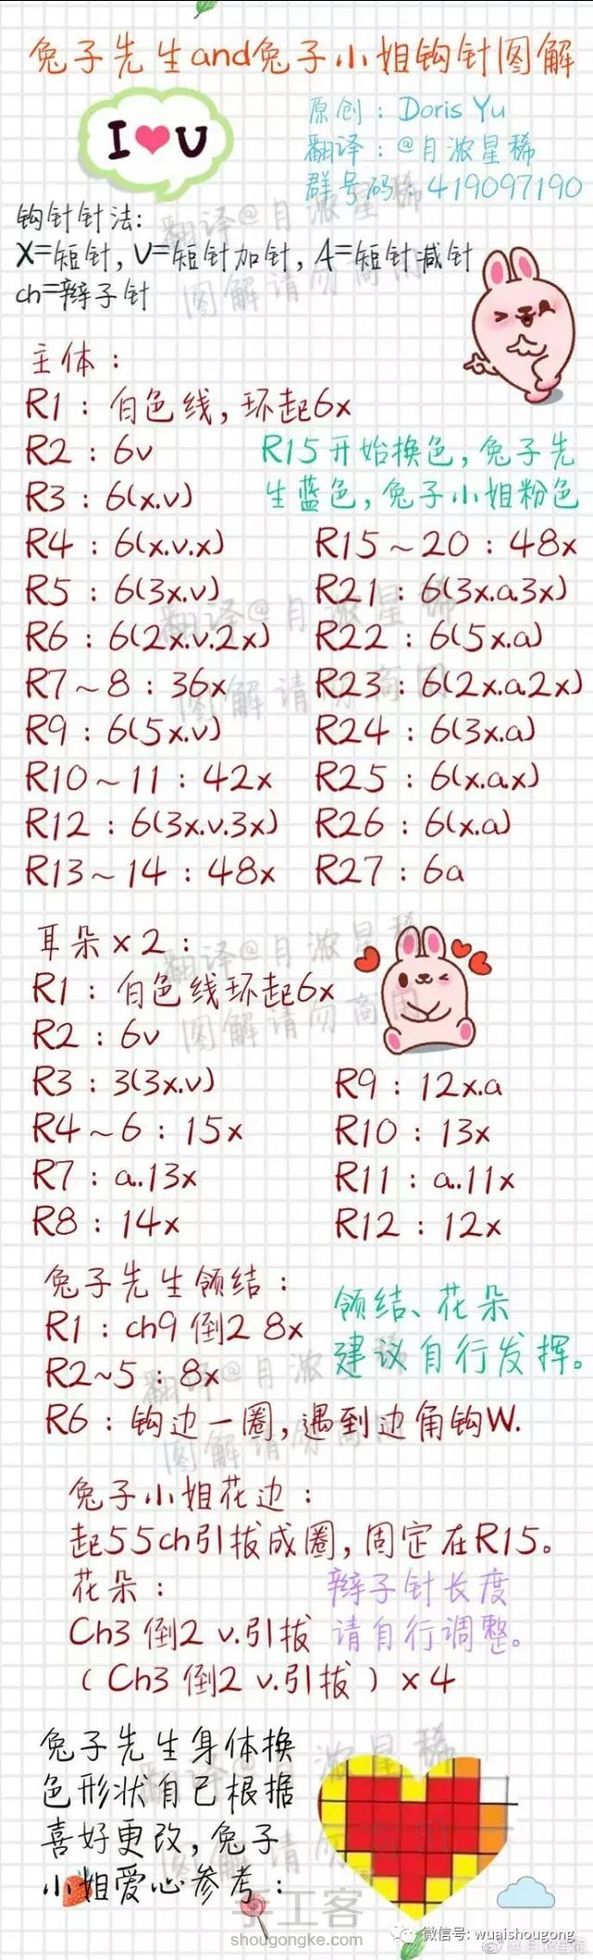 兔子先生and兔子小姐钩针图解
I U
原创：Doris Yu
翻译：@月浓星稀
群号码：419097190
钩针针法:
X=短针, V=短针加针, A=短针减针
ch=辫子针
主体：
R1：白色线, 环起6x
R2：6v
R3：6(x.v)
R4：6(x.v.x)
R5：6(3x.v)
R6：6(2x.v.2x)
R7~8：36x
R9：6(5x.v)
R10~11：42x
R12：6(3x.v.3x)
R13~14：48x
R15开始换色, 兔子先
生蓝色, 兔子小姐粉色
R15~20：48x
R21：6(3x.a.3x)
R22：6(5x.a)
R23：6(2x.a.2x)
R24：6(3x.a)
R25：6(x.a.x)
R26：6(x.a)
R27：6a
耳朵×2：
R1：白色线环起6x
R2：6v
R3：3(3x.v)
R4~6：15x
R7：a.13x
R8：14x
R9：12x.a
R10：13x
R11：a.11x
R12：12x
兔子先生领结：
R1：ch9 倒2 8x
R2~5：8x
R6：钩边一圈, 遇到边角钩W.
领结、花朵
建议自行发挥。
兔子小姐花边：
起55ch引拔成圈, 固定在R15。
花朵：
Ch3 倒2 v.引拔
（Ch3 倒2 v.引拔）×4
辫子针长度
请自行调整。
兔子先生身体换
色形状自己根据
喜好更改, 兔子
小姐爱心参考：
翻译@月浓星稀
图解请勿商用
手工客
shougongke.com
微信号: wuaishougong